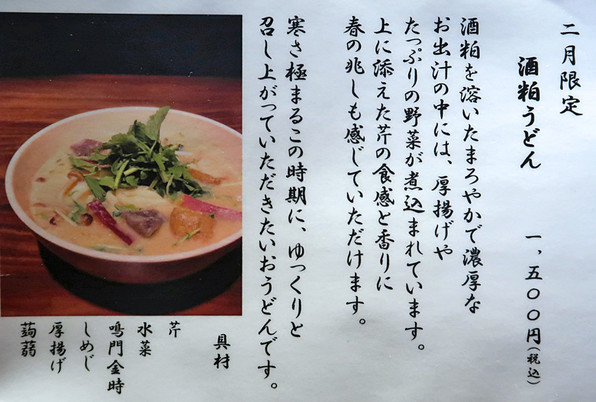 二月限定
酒粕うどん 一、五〇〇円(税込)
酒粕を溶いたまろやかで濃厚な
お出汁の中には、厚揚げや
たっぷりの野菜が煮込まれています。
上に添えた芹の食感と香りに
春の兆しも感じていただけます。
寒さ極まるこの時期に、ゆっくりと
召し上がっていただきたいおうどんです。
具材
芹
水菜
鳴門金時
しめじ
厚揚げ
蒟蒻